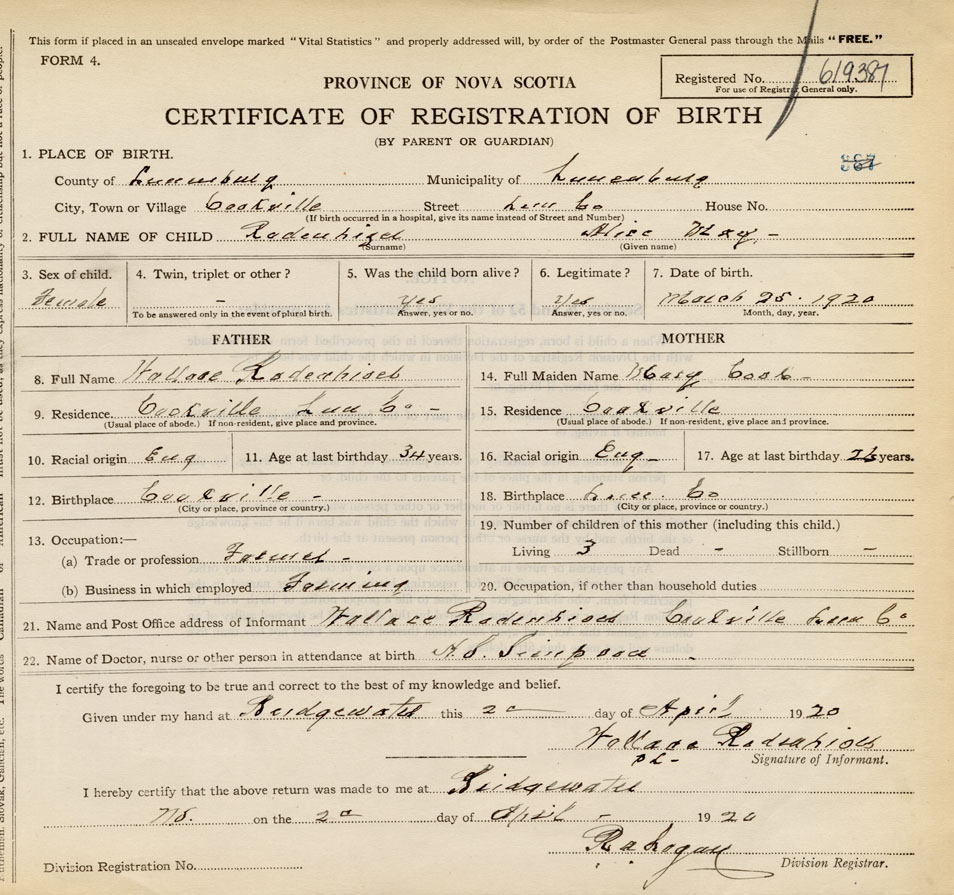 This form if placed in an unsealed envelope marked "Vital Statistics" and properly addressed will, by order of the Postmaster General pass through the Mails "FREE."
FORM 4.
Registered No. 619387
For use of Registrar General only.
PROVINCE OF NOVA SCOTIA
CERTIFICATE OF REGISTRATION OF BIRTH
(BY PARENT OR GUARDIAN)
1. PLACE OF BIRTH.
County of Lunenburg Municipality of Lunenburg
City, Town or Village Cookville Street Lun Co House No.
(If birth occurred in a hospital, give its name instead of Street and Number)
2. FULL NAME OF CHILD Rodenhiser Alice May -
(Surname) (Given name)
3. Sex of child. 4. Twin, triplet or other? 5. Was the child born alive? 6. Legitimate? 7. Date of birth.
Female - Yes Yes March 25. 1920
To be answered only in the event of plural birth. Answer, yes or no. Answer, yes or no. Month, day, year.
FATHER MOTHER
8. Full Name Wallace Rodenhiser 14. Full Maiden Name Mary Cook -
9. Residence. Cookville Lun Co - 15. Residence Cookville
(Usual place of abode.) If non-resident, give place and province. (Usual place of abode.) If non-resident, give place and province.
10. Racial origin Eng 11. Age at last birthday 34 years. 16. Racial origin Eng 17. Age at last birthday years.
12. Birthplace Cookville - 18. Birthplace Lun. Co
(City or place, province or country.) (City or place, province or country.)
13. Occupation:— 19. Number of children of this mother (including this child.)
(a) Trade or profession Farmer - Living 3 Dead - Stillborn -
(b) Business in which employed Farming 20. Occupation, if other than household duties
21. Name and Post Office address of Informant Wallace Rodenhiser Cookville Lun Co
22. Name of Doctor, nurse or other person in attendance at birth Simpson -
I certify the foregoing to be true and correct to the best of my knowledge and belief.
Given under my hand at Bridgewater this 2 day of April 1920
Wallace Rodenhiser
Signature of Informant.
I hereby certify that the above return was made to me at Bridgewater
on the 2 day of April - 1920
Division Registration No. Division Registrar.